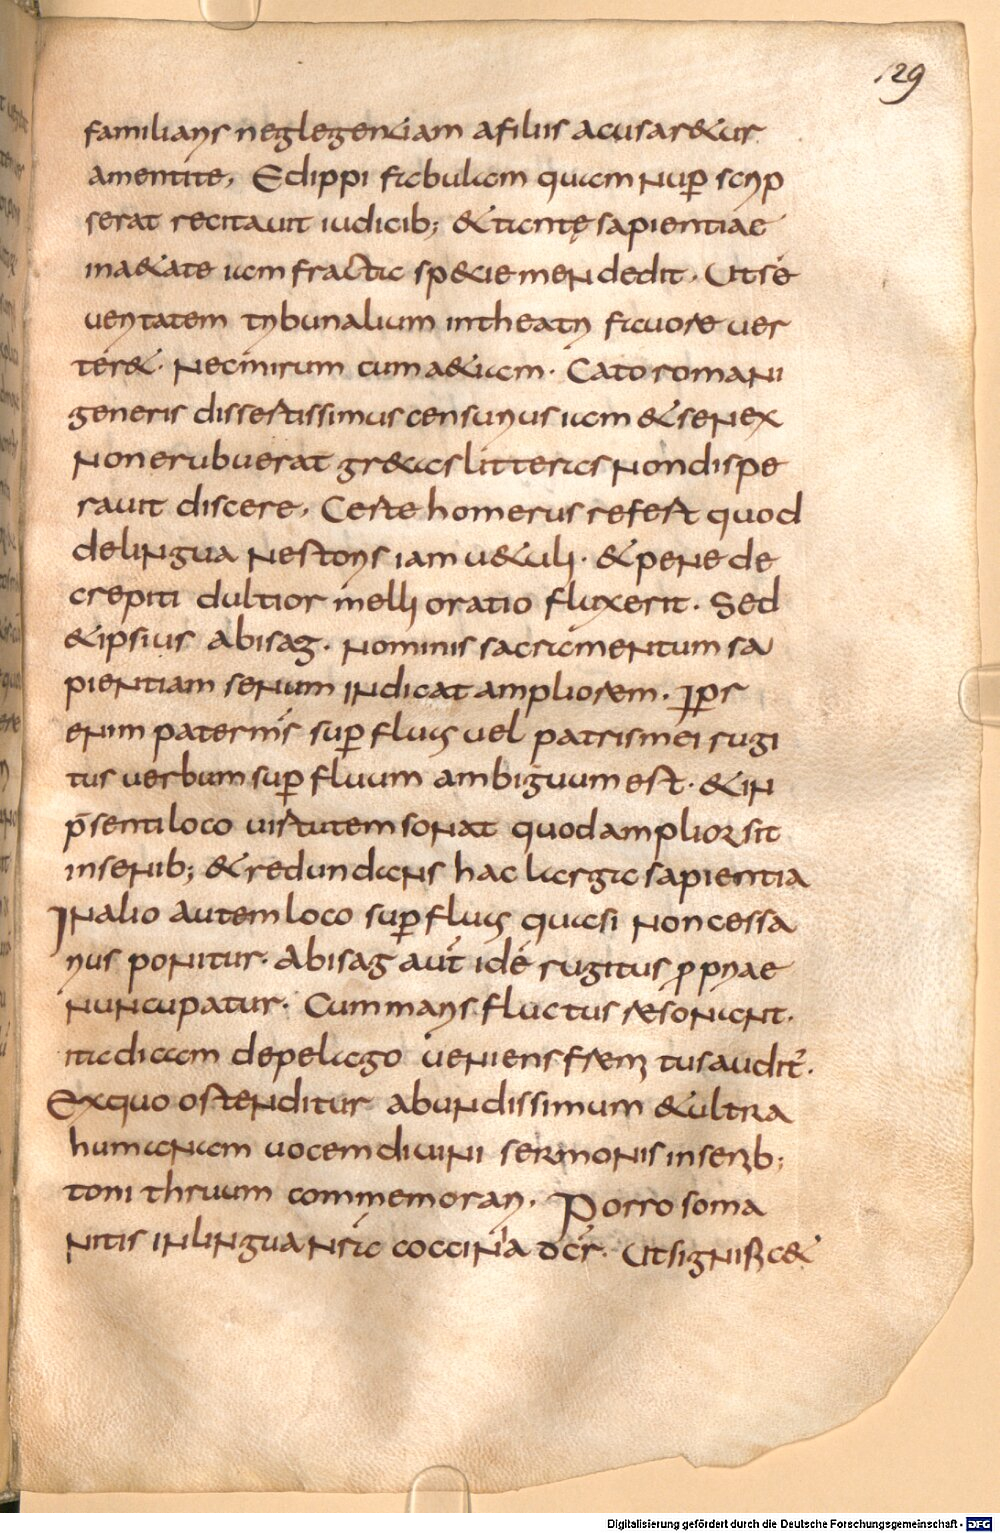 129
familiaris neglegentiam afiliis acusar&ur
amentite, Edippi fabulam quam nup scrip
serat recitauit iudicib; &tantę sapientiae
ina&ate iam fracta sp&ciemen dedit. Ut sé
ueritatem tribunalium intheatri fauore uer
ter&. Necmirum cuma&iam. Cato romani
generis dissertissimus censurius iam &senex
nonerubuerat gr&cas litteras nondispe
rauit discere, Certe homerus refert quod
delingua nestoris iam u&uli. &pene de
crepiti dultior melli oratio fluxerit. Sed
&ipsius abisag. nominis sacramentum sa
pientiam senum indicat ampliorem. Ipsr
enim paternis sup fluis uel patrismei rugi
tus uerbum sup fluum ambiguum est. &in
p̄senti loco uirtutem sonat quod amplior sit
insenib; &redundans hac larga sapientia
Inalio autem loco sup fluis quasi noncessa
rius ponitur. Abisag aut́ idé rugitus ppriae
nuncupatur. Cum maris fluctus resonant.
itadicam depelago ueniens frem tus auditr̄.
Exquo ostenditur abundissimum &ultra
humanam uocem diuini sermonis insenib;
toni thruum commemorari. Porro soma
nitis inlingua nr̄a coccinia dcr̄. Utsignific&
Digitalisierung gefördert durch die Deutsche Forschungsgemeinschaft - DFG